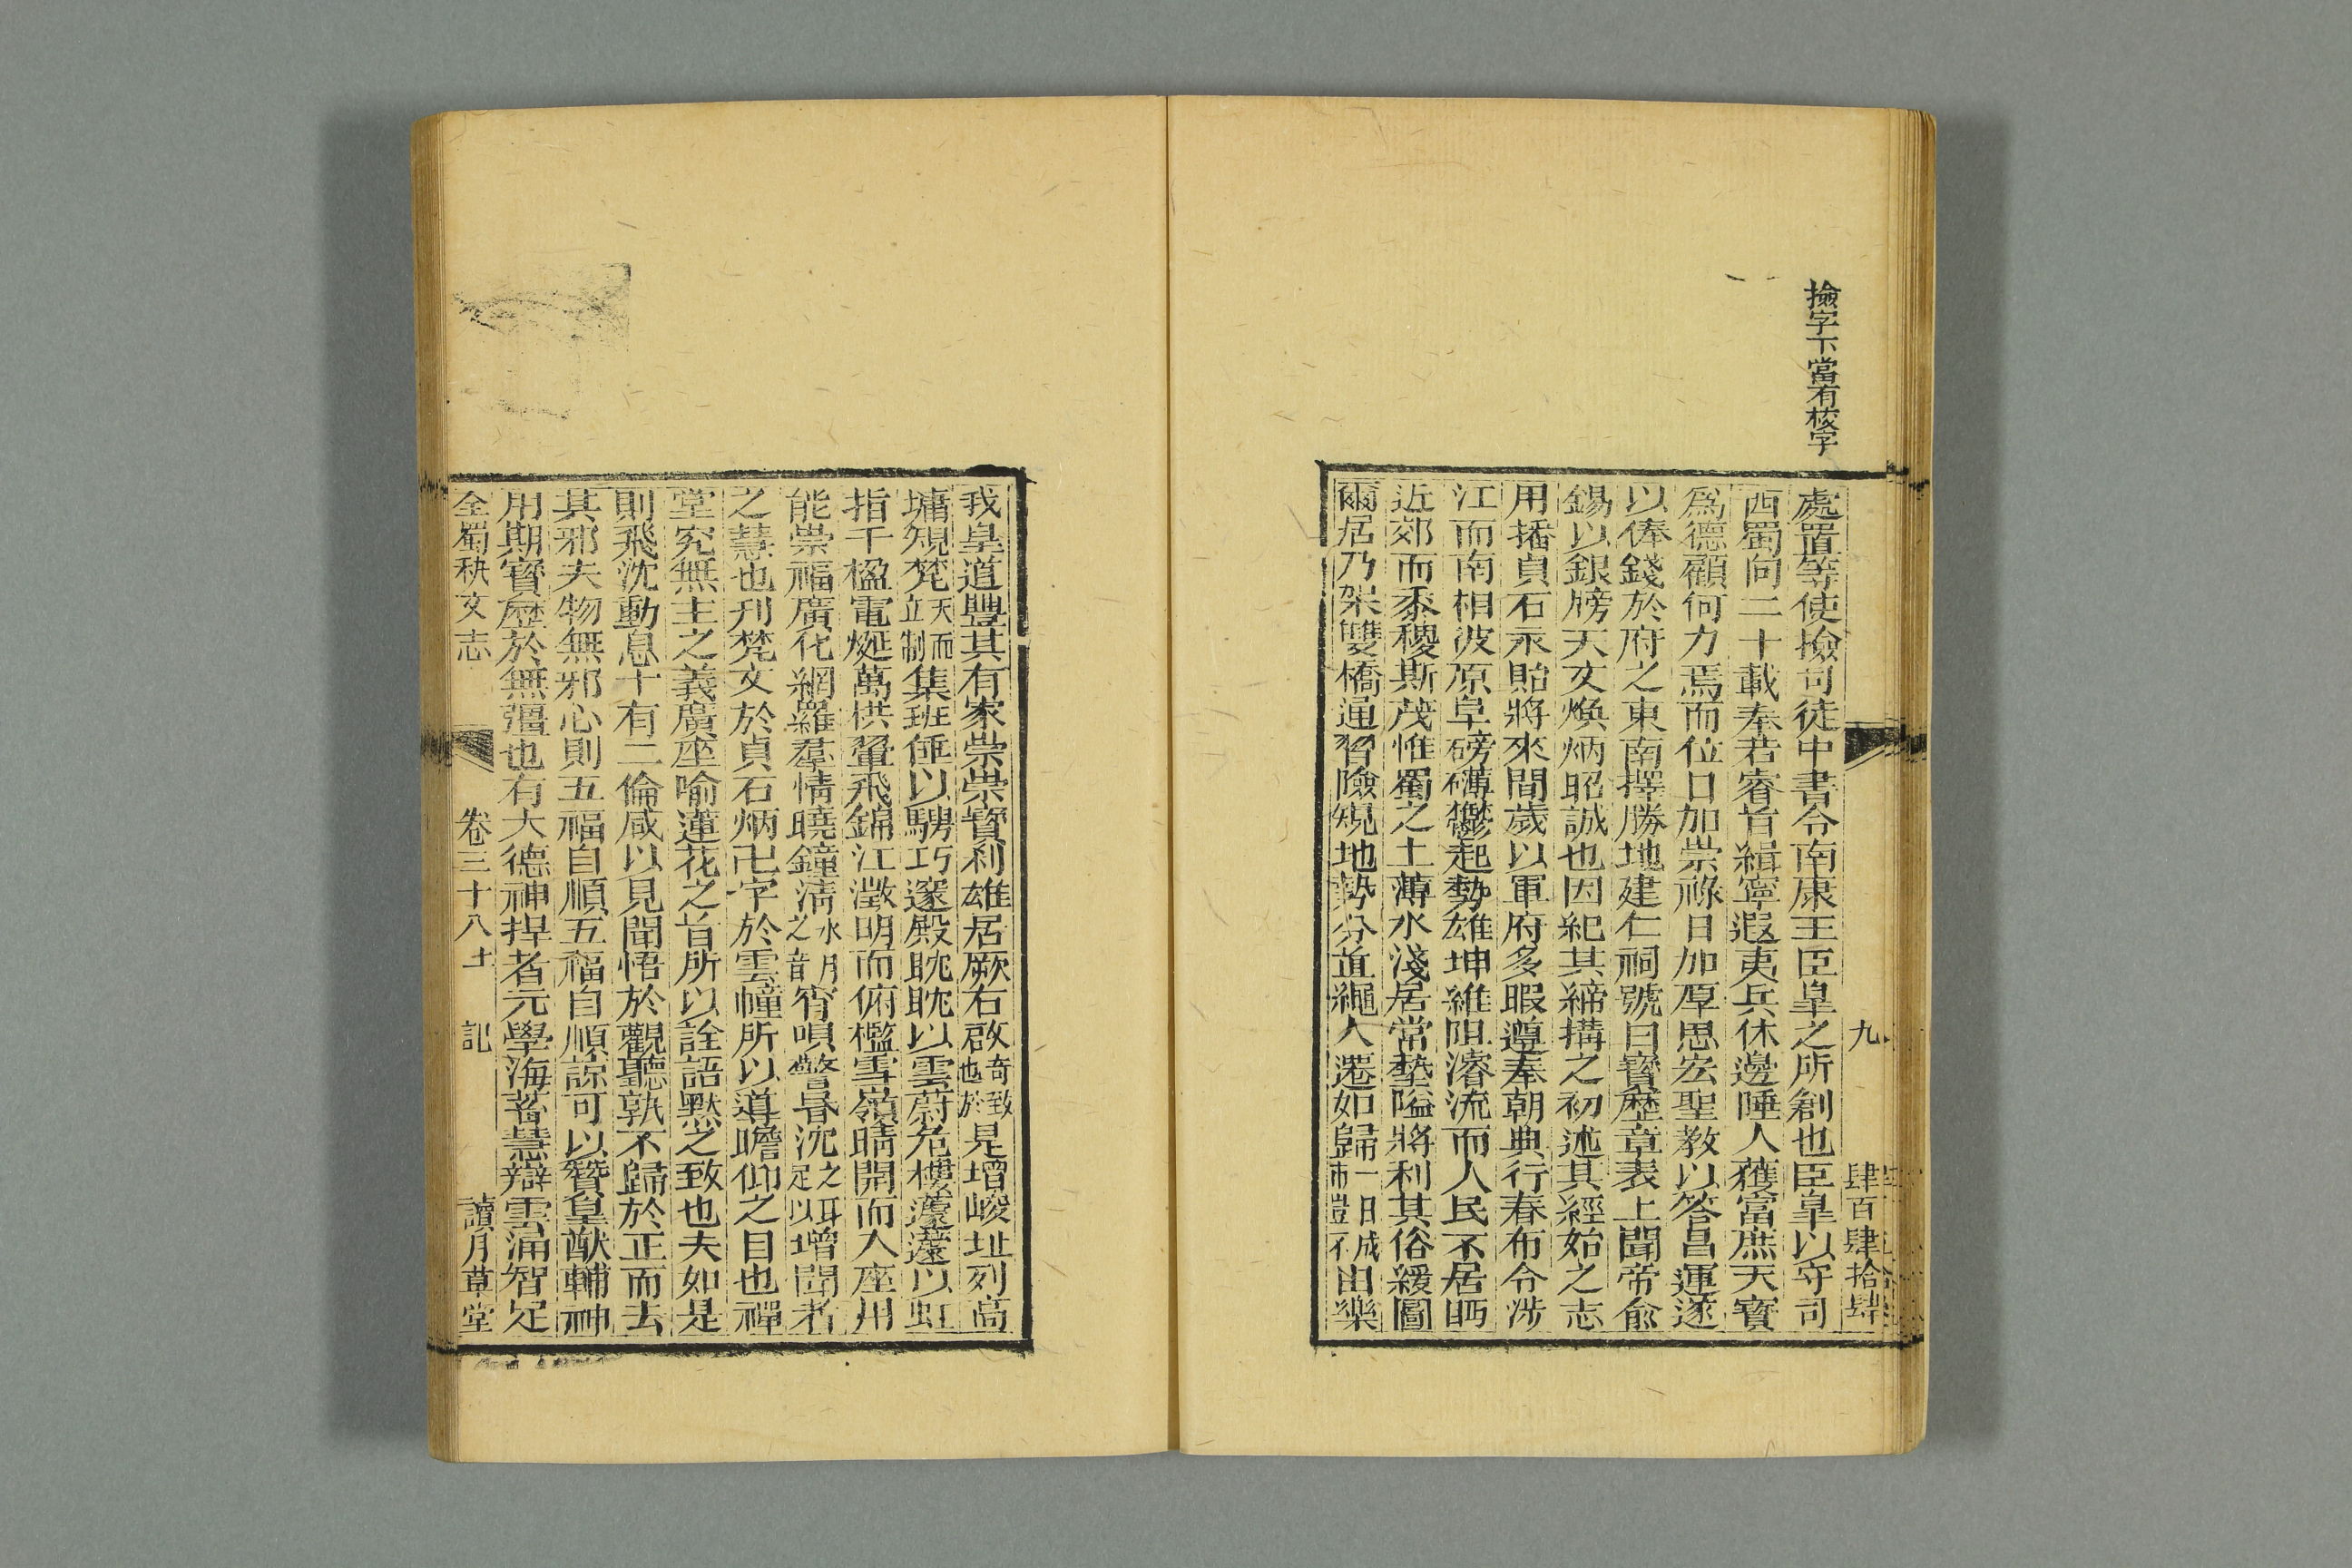 撿字下當有棱字
九
肆百肆拾肆
處置等使撿司徒中書令南康王臣皐之所創也臣皐以守司
西蜀向二十載奉若睿旨緝寧遐夷兵休邊陲人獲富庶天寶
爲德顧何力焉而位日加崇祿日加厚思宏聖敎以答昌運遂
以俸錢於府之東南擇勝地建仁祠號曰寶歷章表上聞帝俞
錫以銀牓天文煥炳昭誠也因紀其締搆之初述其經始之志
用播貞石永貽將來間歲以軍府多暇遵奉朝典行春布令涉
江而南相波原阜磅礴鬱起勢雄坤維阻濬流而人民不居眄
近郊而黍稷斯茂惟蜀之土薄水淺居常墊隘將利其俗緩圖
爾居乃架雙橋通習險規地勢分直繩人遷如歸一日成市豈不由樂
我皇道豐其有家崇崇寶利雄居厥右啟奇致也於是增峻址列高
墉規梵天而立制集班倕以騁巧邃殿耽耽以雲蔚危樓蘧蘧以虹
指千楹電烻萬栱翬飛錦江澂明而俯檻雪嶺晴開而入座用
能崇福廣化網羅羣情曉鐘淸水月之音宵唄警昏沈之耳足以增聞者
之慧也刊梵文於貞石炳卍字於雲幢所以導瞻仰之目也禪
堂究無主之義廣座喻蓮花之旨所以詮語默之致也夫如是
則飛沈動息十有二倫咸以見聞悟於觀聽孰不歸於正而去
其邪夫物無邪心則五福自順五福自順諒可以贊皇猷輔神
用期寶歷於無彊也有大德神捍者元學海蓄慧辯雲涌智足
全蜀秇文志
卷三十八上
記
讀月草堂